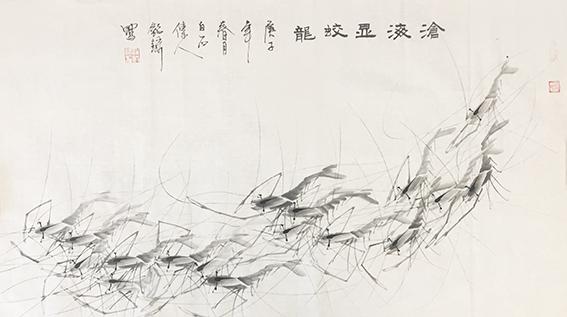 滄海显蛟龍
庚子
年
春月
白石
传人